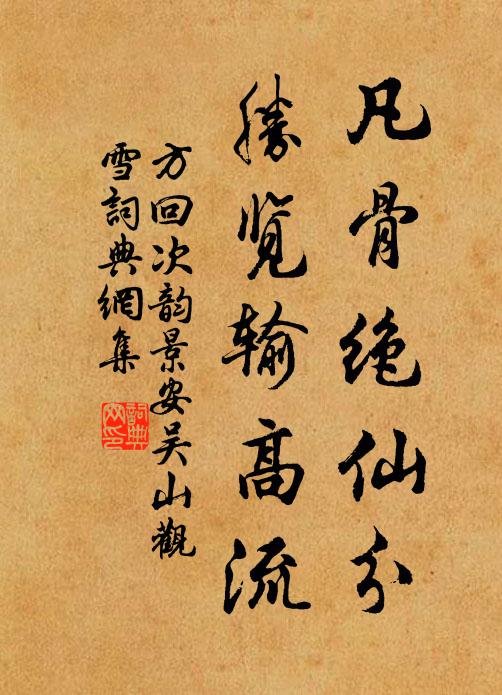 凡骨绝仙分
胜览输高流
方回次韵景安吴山觀
雪詞典網集
詞典
网印